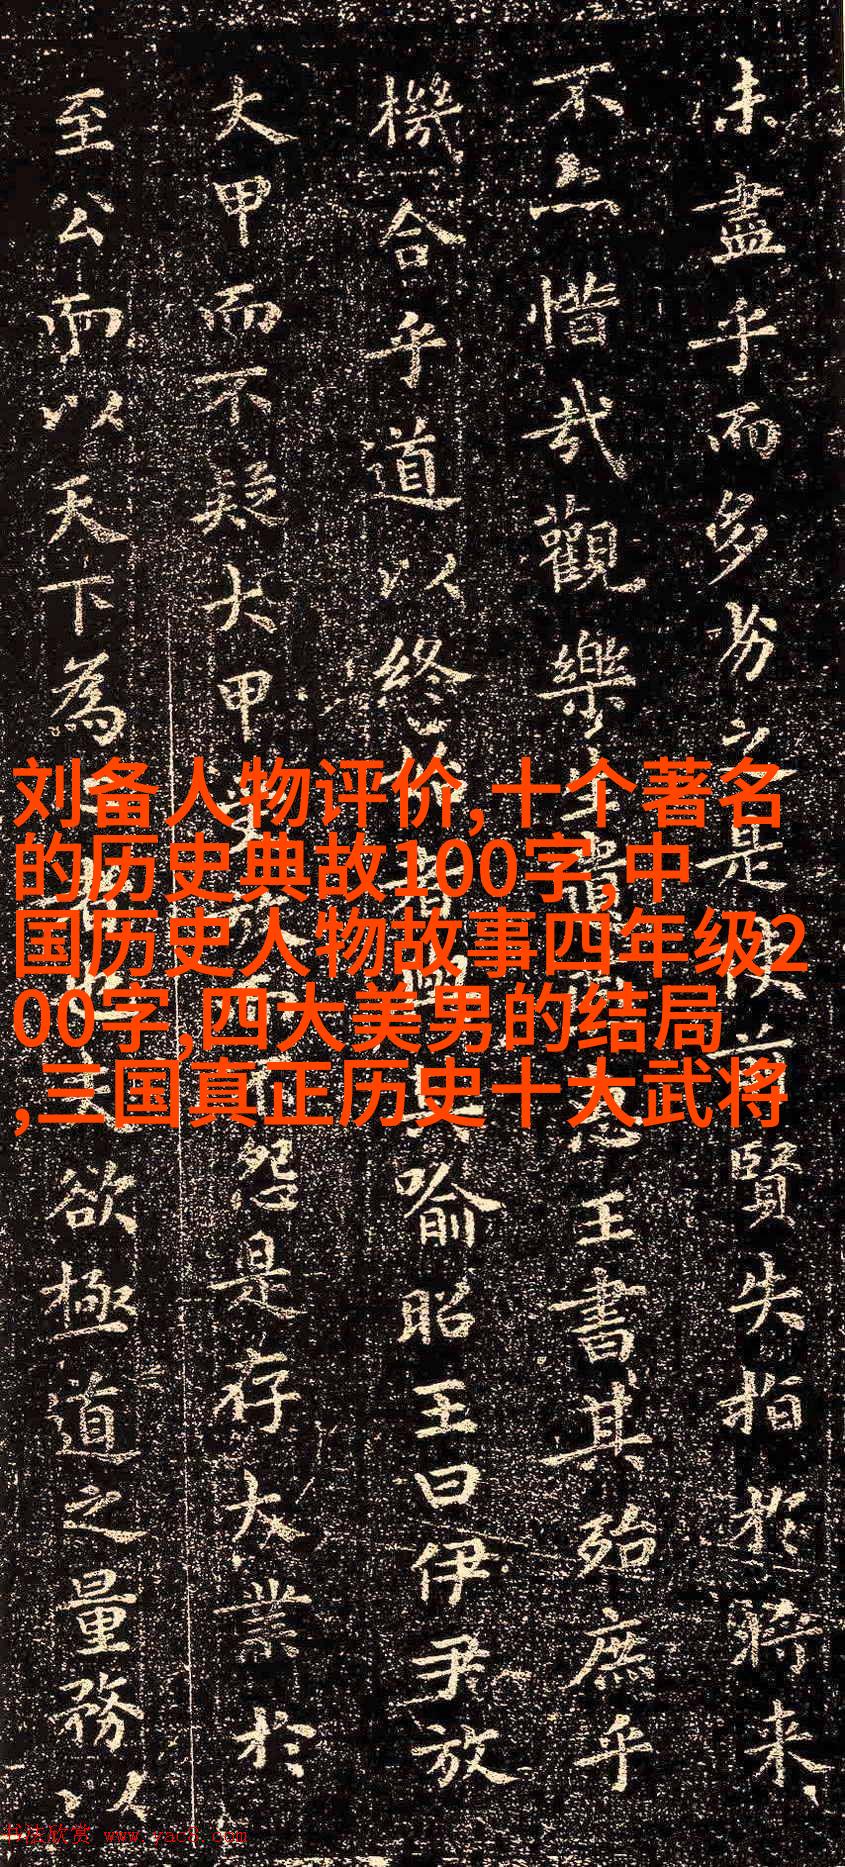 未盡乎而多劣之是使前賢失指於將来
不亦惜哉觀樂生遺惠王書其殆庶乎
機合乎道以終始者與其喻昭王曰伊尹放
大甲而不疑大甲受放不怨是存大業於
至公而以天下為者也夫欲極道之量務以
刘备人物评价,十个著名
的历史典故100字,中
国历史人物故事四年级2
00字,四大美男的结局
,三国真正历史十大武将
书法欣赏 www.yac8.com